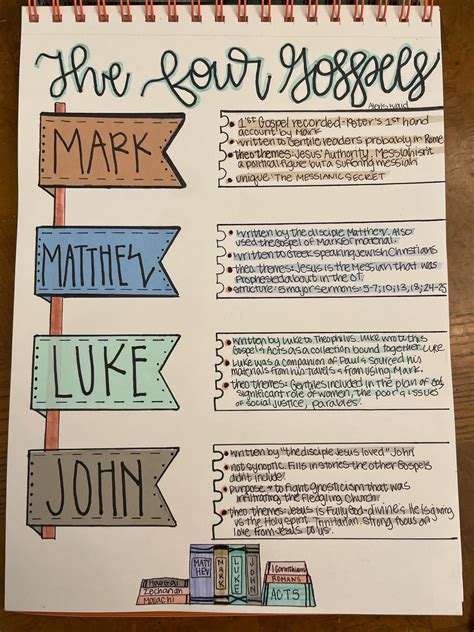 The Four Gospels
MARK
• 1st Gospel recorded - Peter's 1st hand
account by Mark
• written to Gentile readers probably in Rome
• theo themes: Jesus' Authority. Messiah isn't
a political figure but a suffering messiah
• unique: The MESSIANIC SECRET
MATTHEW
• written by the disciple Matthew. Also
used the Gospel of Mark for material.
• written to Greek speaking Jewish Christians
• theo themes: Jesus is the Messiah that was
prophesied about in the O.T.
• structure: 5 major sermons: 5-7; 10; 13; 18; 24-25
LUKE
• written by Luke to Theophilus. Luke wrote this
Gospel & Acts as a collection bound together.
• Luke was a companion of Paul & sourced his
materials from his travels & from using Mark.
• theo themes: Gentiles included in the plan of God,
significant role of women, the poor & issues
of social justice, parables.
JOHN
• written by "the disciple Jesus loved" John
• not synoptic. Fills in stories the other Gospels
didn't include.
• purpose → to fight Gnosticism that was
infiltrating the fledgling church.
• theo themes: Jesus is fully God-divine & He is giving
us the Holy Spirit. Trinitarian. strong focus on
love from Jesus to us.
MATT
HEW
MARK
LUKE
JOHN
Haggai
Zechariah
Malachi
1 Corinthians
ROMANS
ACTS